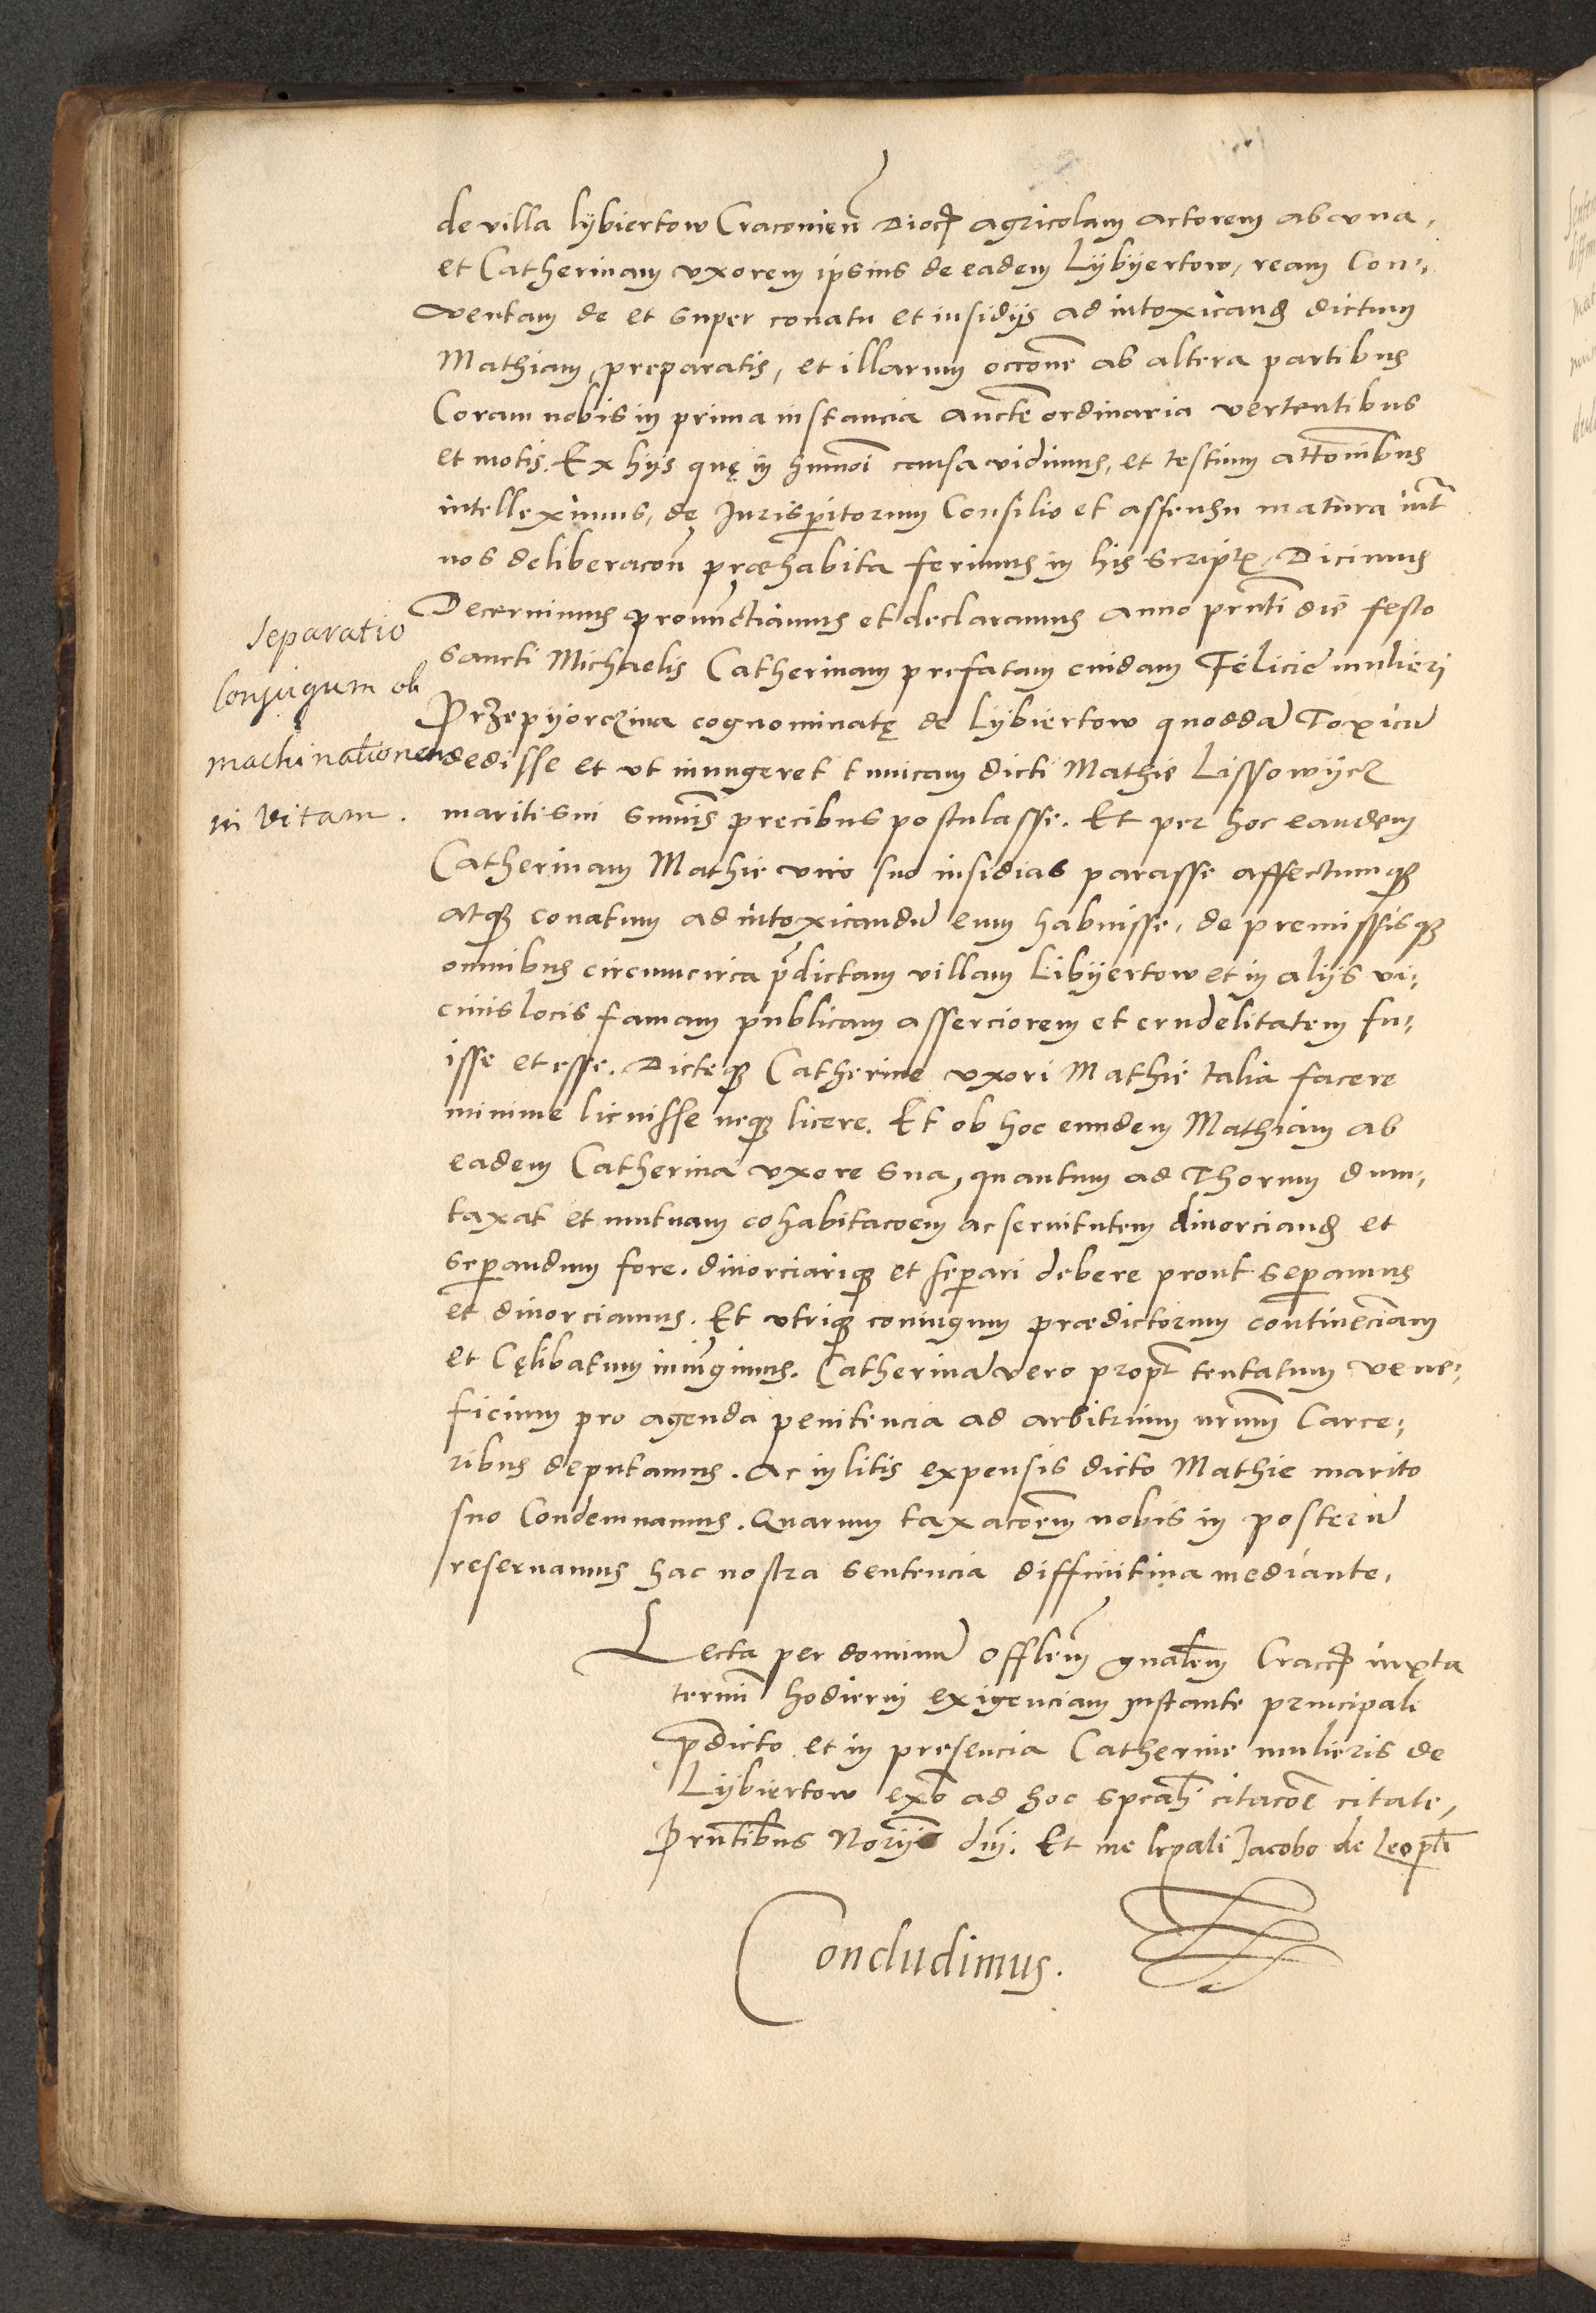 de villa lÿbiertow Craconień Dioc̄ agricolam actorem ab vna,
et Catherinam vxorem ipsius de eadem Lÿbÿertow, ream Con-,
ventam de et super conatu et insidÿs ad intoxicand dictum
Mathiam preparatis, et illarum occōne ab altera partibus
Coram nobis in prima instancia aucte ordinaria vertentibus
et motis. Ex hÿs quę in hmōi causa vidimus, et testium attōnibus
intelleximus, de Jurisperitorum Consilio et assensu matura int
nos deliberacoń præhabita ferimus in his script, Dicimus
Decernimus pronunctiamus et declaramus anno pnti die festo
Separatio
sancti Michaelis Catherinam prefatam cuidam Felicie mulieri
Conjugum ob
Przepÿorczina cognominatę de Lÿbiertow quoddā Toxicū
machinationem
dedisse et vt inungeret tunicam dicti Mathie Lissowÿcz
in vitam.
mariti sui sumis precibus postulasse. Et per hoc eandem
Catherinam Mathie viro suo insidias parasse affectumq
atq conatum ad intoxicandū eum habuisse, de premissisq
omnibus circumcirca pdictam villam Libÿertow et in alÿs vi-
cinis locis famam publicam asserciorem et crudelitatem fu-
isse et esse. Dicteq Catherine vxori Mathie talia facere
minime licuisse neq licere. Et ob hoc eundem Mathiam ab
eadem Catherina vxore sua, quantum ad Thorum dum-
taxat et mutuam cohabitacoem ac seruitutem diuorciand et
seperandum fore. diuorciariq et seperari debere prout seperamus
et diuorciamus. Et vtriq coniugum prædictorum continenciam
et Cęlibatum iniungimus. Catherinā vero propt tentatum vene-
ficium pro agenda penitencia ad arbitrium nrum Carce-
ribus deputamus. Ac in litis expensis dicto Mathie marito
suo Condemnamus. Quarum taxacoem nobis in posterū
reseruamus hac nostra sentencia diffinitiua mediante.
Lecta per dominū Offlem gnalem Cracc iuxta
termi hodierni exigenciam instante principali
pdicto et in presencia Catherine mulieris de
Lÿbiertow ex ad hoc spcali citacoe citate,
Prntibus Norÿs dnj. Et me Jacobo de Leopli
Concludimus.